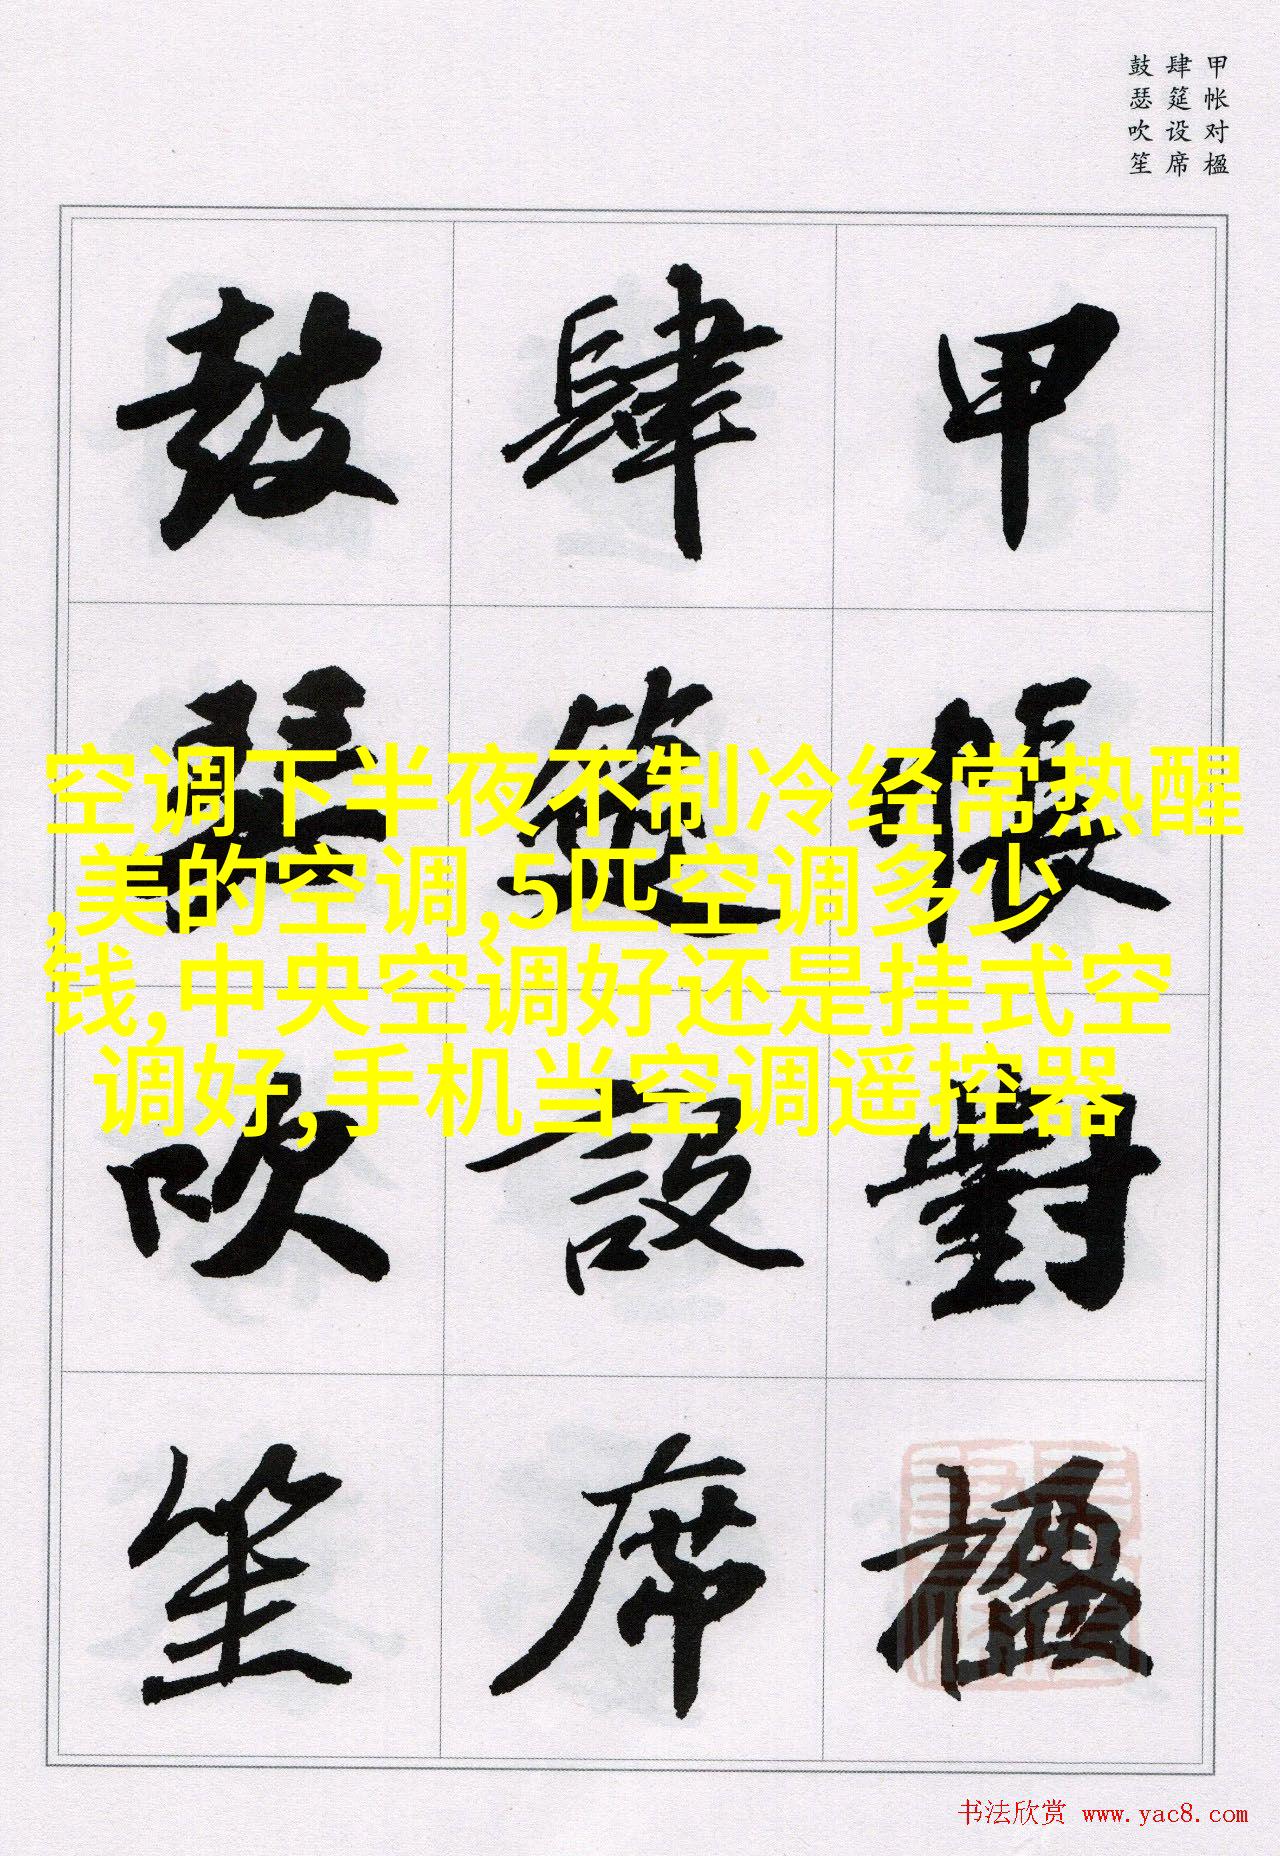 甲帐对楹
肆筵设席
鼓瑟吹笙
甲帳對楹
肆筵設席
鼓瑟吹笙
空调下半夜不制冷经常热醒
,美的空调,5匹空调多少
钱,中央空调好还是挂式空
调好,手机当空调遥控器
书法欣赏 www.yac8.com